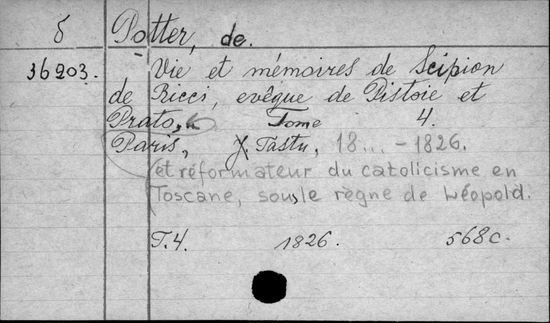 5 Potter, de.
36203. Vie et mémoires de Scipion
de Ricci, evêque de Pistoie et
Prato, Tome 4.
Paris, J. Tastu, 18... - 1826.
(et réformateur du catolicisme en
Toscane, sous le règne de Léopold.
T.4. 1826. 568 c.